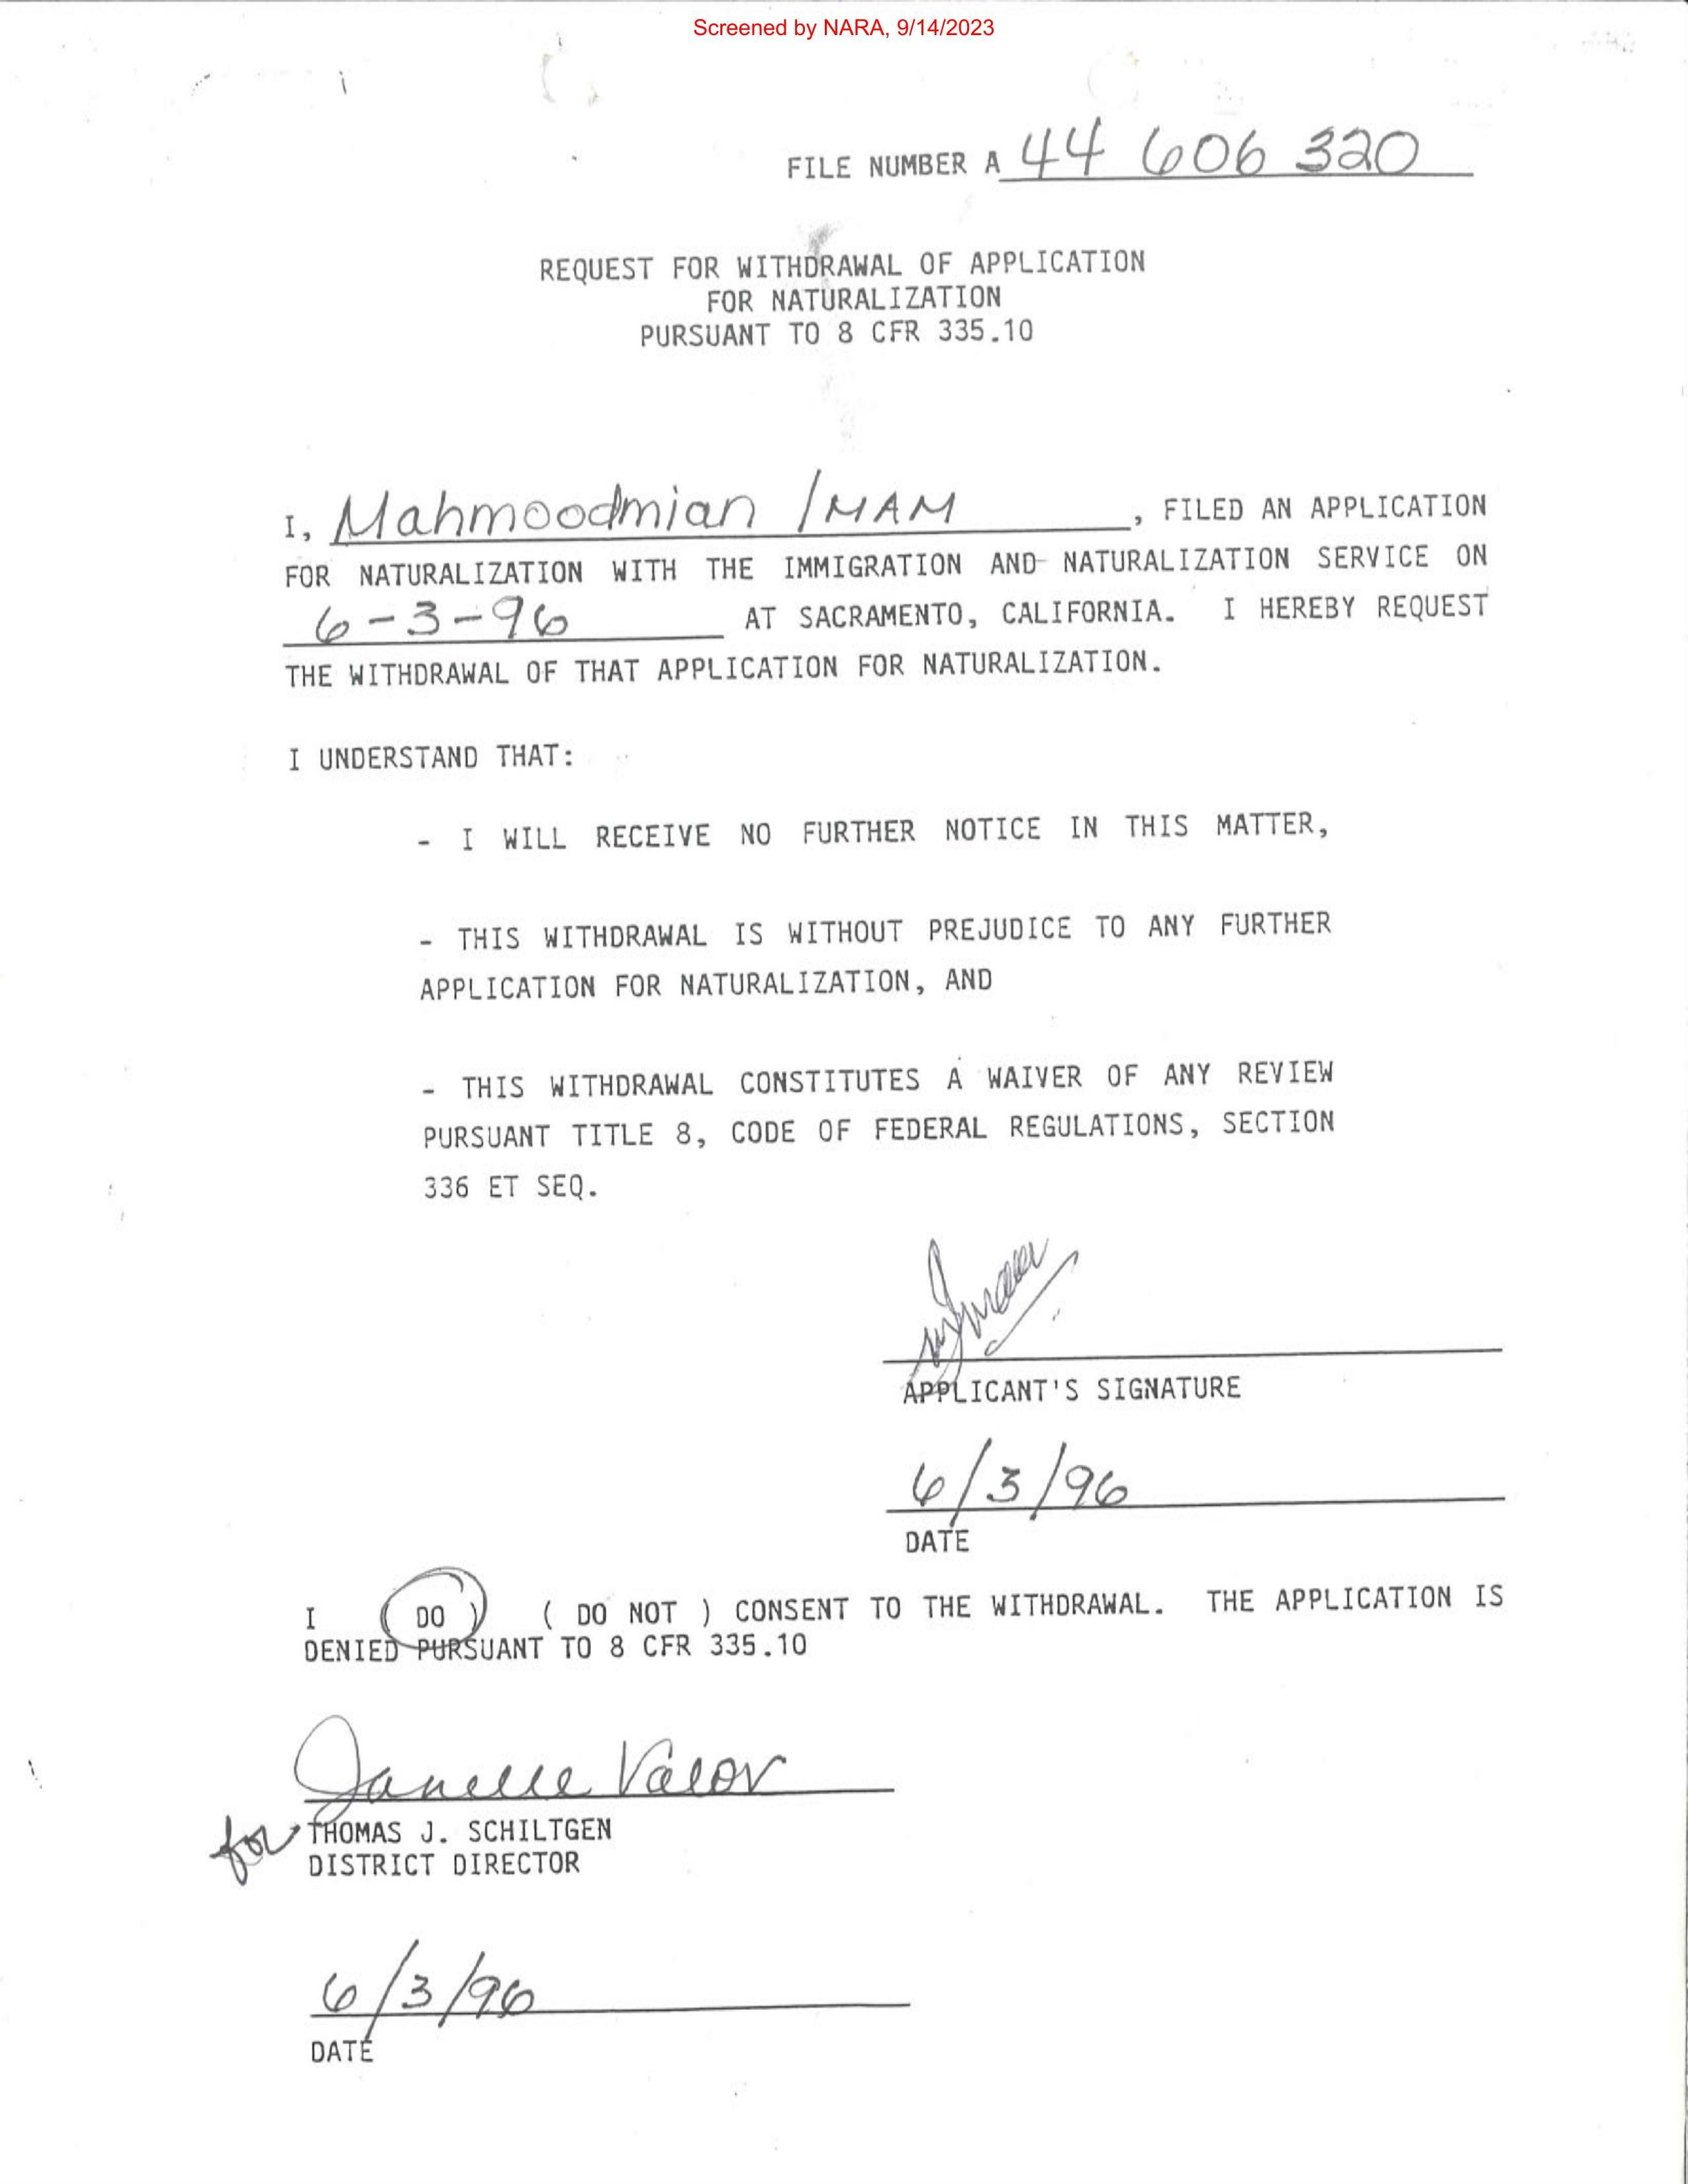 Screened by NARA, 9/14/2023
FILE NUMBER A 44 606 320
REQUEST FOR WITHDRAWAL OF APPLICATION
FOR NATURALIZATION
PURSUANT TO 8 CFR 335.10
I, Mahmoodmian IMAM, FILED AN APPLICATION
FOR NATURALIZATION WITH THE IMMIGRATION AND NATURALIZATION SERVICE ON
6-3-96 AT SACRAMENTO, CALIFORNIA. I HEREBY REQUEST
THE WITHDRAWAL OF THAT APPLICATION FOR NATURALIZATION.
I UNDERSTAND THAT:
- I WILL RECEIVE NO FURTHER NOTICE IN THIS MATTER,
- THIS WITHDRAWAL IS WITHOUT PREJUDICE TO ANY FURTHER
APPLICATION FOR NATURALIZATION, AND
- THIS WITHDRAWAL CONSTITUTES A WAIVER OF ANY REVIEW
PURSUANT TITLE 8, CODE OF FEDERAL REGULATIONS, SECTION
336 ET SEQ.
APPLICANT'S SIGNATURE
6/3/96
DATE
I ( DO ) ( DO NOT ) CONSENT TO THE WITHDRAWAL. THE APPLICATION IS
DENIED PURSUANT TO 8 CFR 335.10
Janelle Valov
for THOMAS J. SCHILTGEN
DISTRICT DIRECTOR
6/3/96
DATE